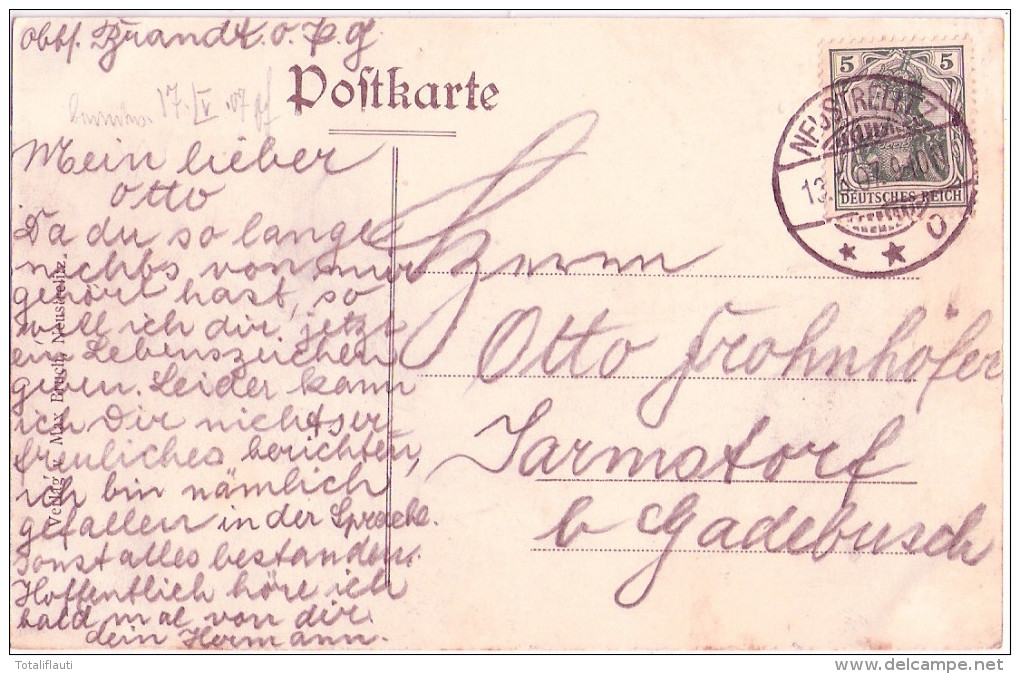 Brandt
17. V. 07
Postkarte
Mein lieber
Otto
Da du so lange
nichts von mir
gehört hast, so
will ich dir jetzt
ein Lebenszeichen
geben. Leider kann
ich Dir nichts er-
freuliches berichten,
ich bin nämlich
gefallen in der
Sonst alles bestanden.
Hoffentlich höre ich
bald mal von dir.
dein Hermann.
Verlag v. Max Bruch, Neustrelitz.
5 5
DEUTSCHES REICH
NEUSTRELITZ
Herrn
Otto Frohnhöfer
Jarmstorf
b Gadebusch
Totaliflauti
http://www.delcampe.net